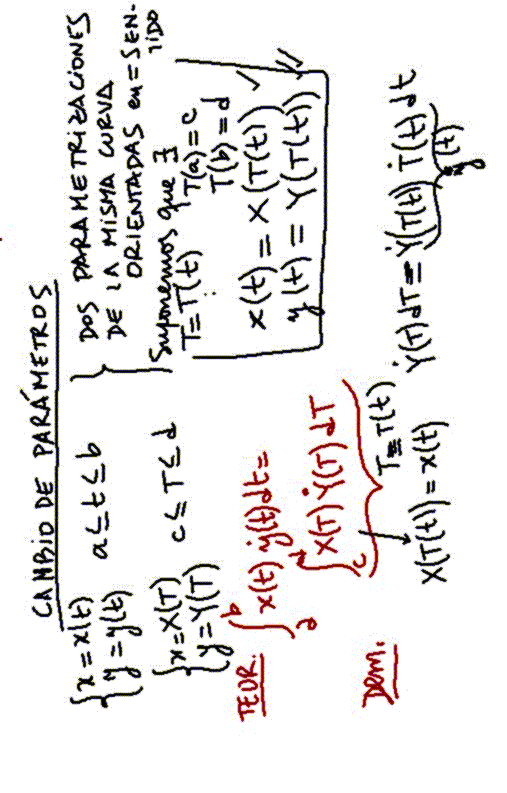 CAMBIO DE PARÁMETROS
{ x = x(t)
y = y(t) a ≤ t ≤ b
{ x = X(T)
y = Y(T) c ≤ T ≤ d
} DOS PARAMETRIZACIONES
DE LA MISMA CURVA
ORIENTADAS en = SEN-
TIDO
Suponemos que ∃
T = T(t) T(a) = c
T(b) = d
x(t) = X(T(t)) ✓
y(t) = Y(T(t)) ✓✓
TEOR. ∫_a^b x(t) ẏ(t) dt =
∫_c^d X(T) Ẏ(T) dT
T = T(t)
Dem. X(T(t)) = x(t) Ẏ(T) dT = Ẏ(T(t)) Ṫ(t) dt
ẏ(t)